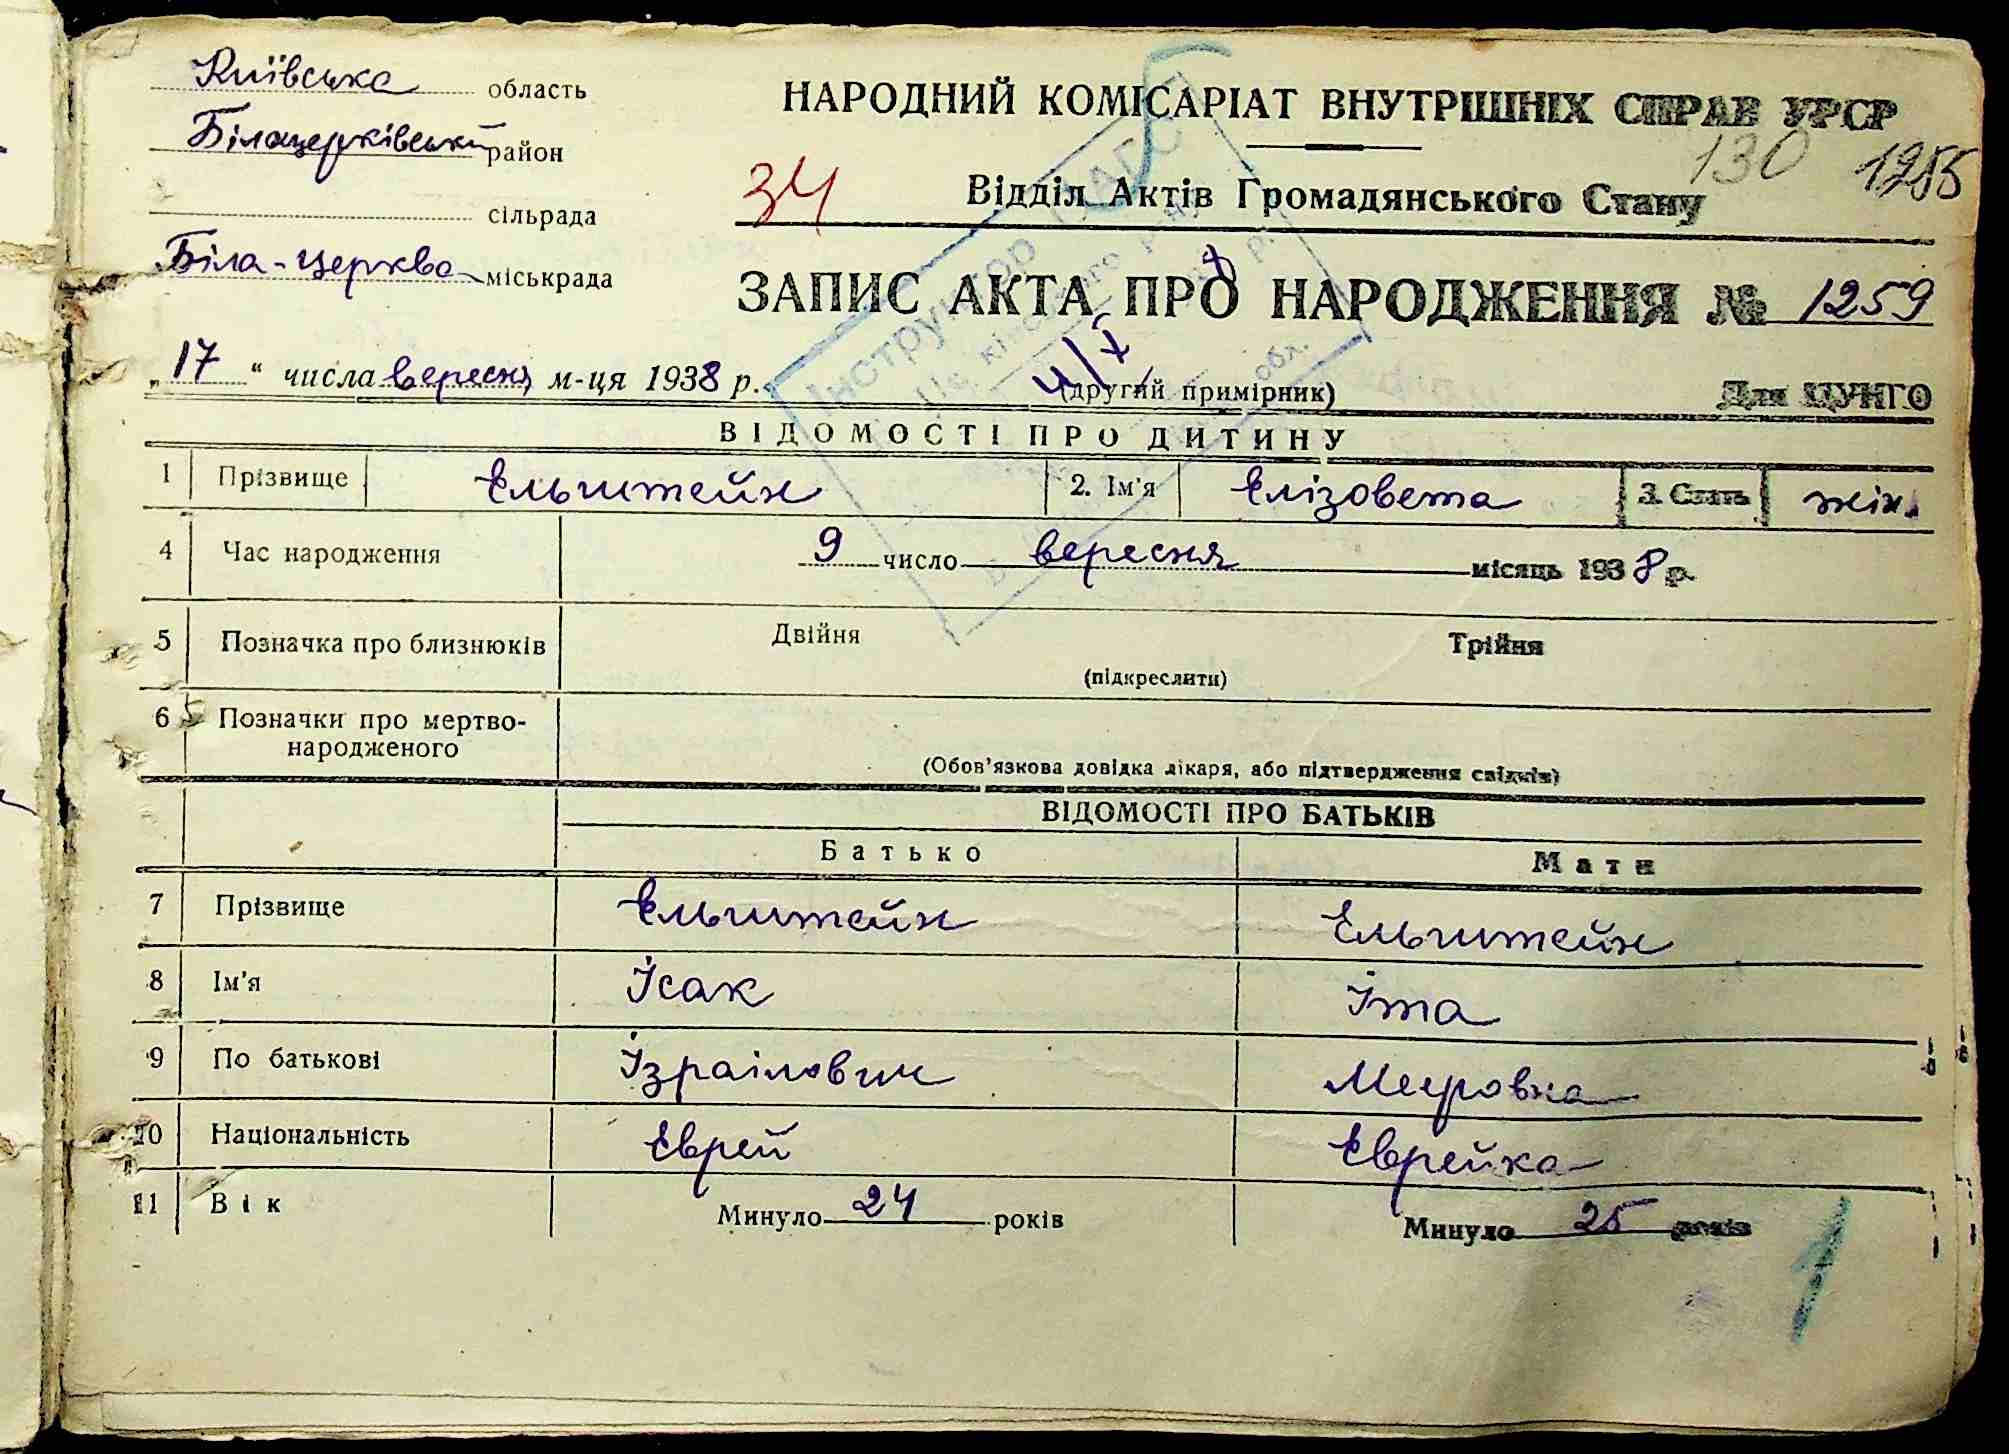 Київська область
Білоцерківський район
сільрада
Біла-Церква міськрада
НАРОДНИЙ КОМІСАРІАТ ВНУТРІШНІХ СПРАВ УРСР
130 1255
34 Відділ Актів Громадянського Стану
ЗАПИС АКТА ПРО НАРОДЖЕННЯ № 1259
„17“ числа вересня м-ця 1938 р.
(другий примірник) Для ЦУНГО
ВІДОМОСТІ ПРО ДИТИНУ
1 Прізвище Ельштейн 2. Ім'я Елізовета 3. Стать жін.
4 Час народження 9 число вересня місяць 1938 р.
5 Позначка про близнюків Двійня Трійня
(підкреслити)
6 Позначки про мертво-
народженого
(Обов'язкова довідка лікаря, або підтвердження свідків)
ВІДОМОСТІ ПРО БАТЬКІВ
Батько Мати
7 Прізвище Ельштейн Ельштейн
8 Ім'я Ісак Іта
9 По батькові Ізраілович Мееровна
10 Національність Еврей Еврейка
11 Вік Минуло 24 років Минуло 25 років
1